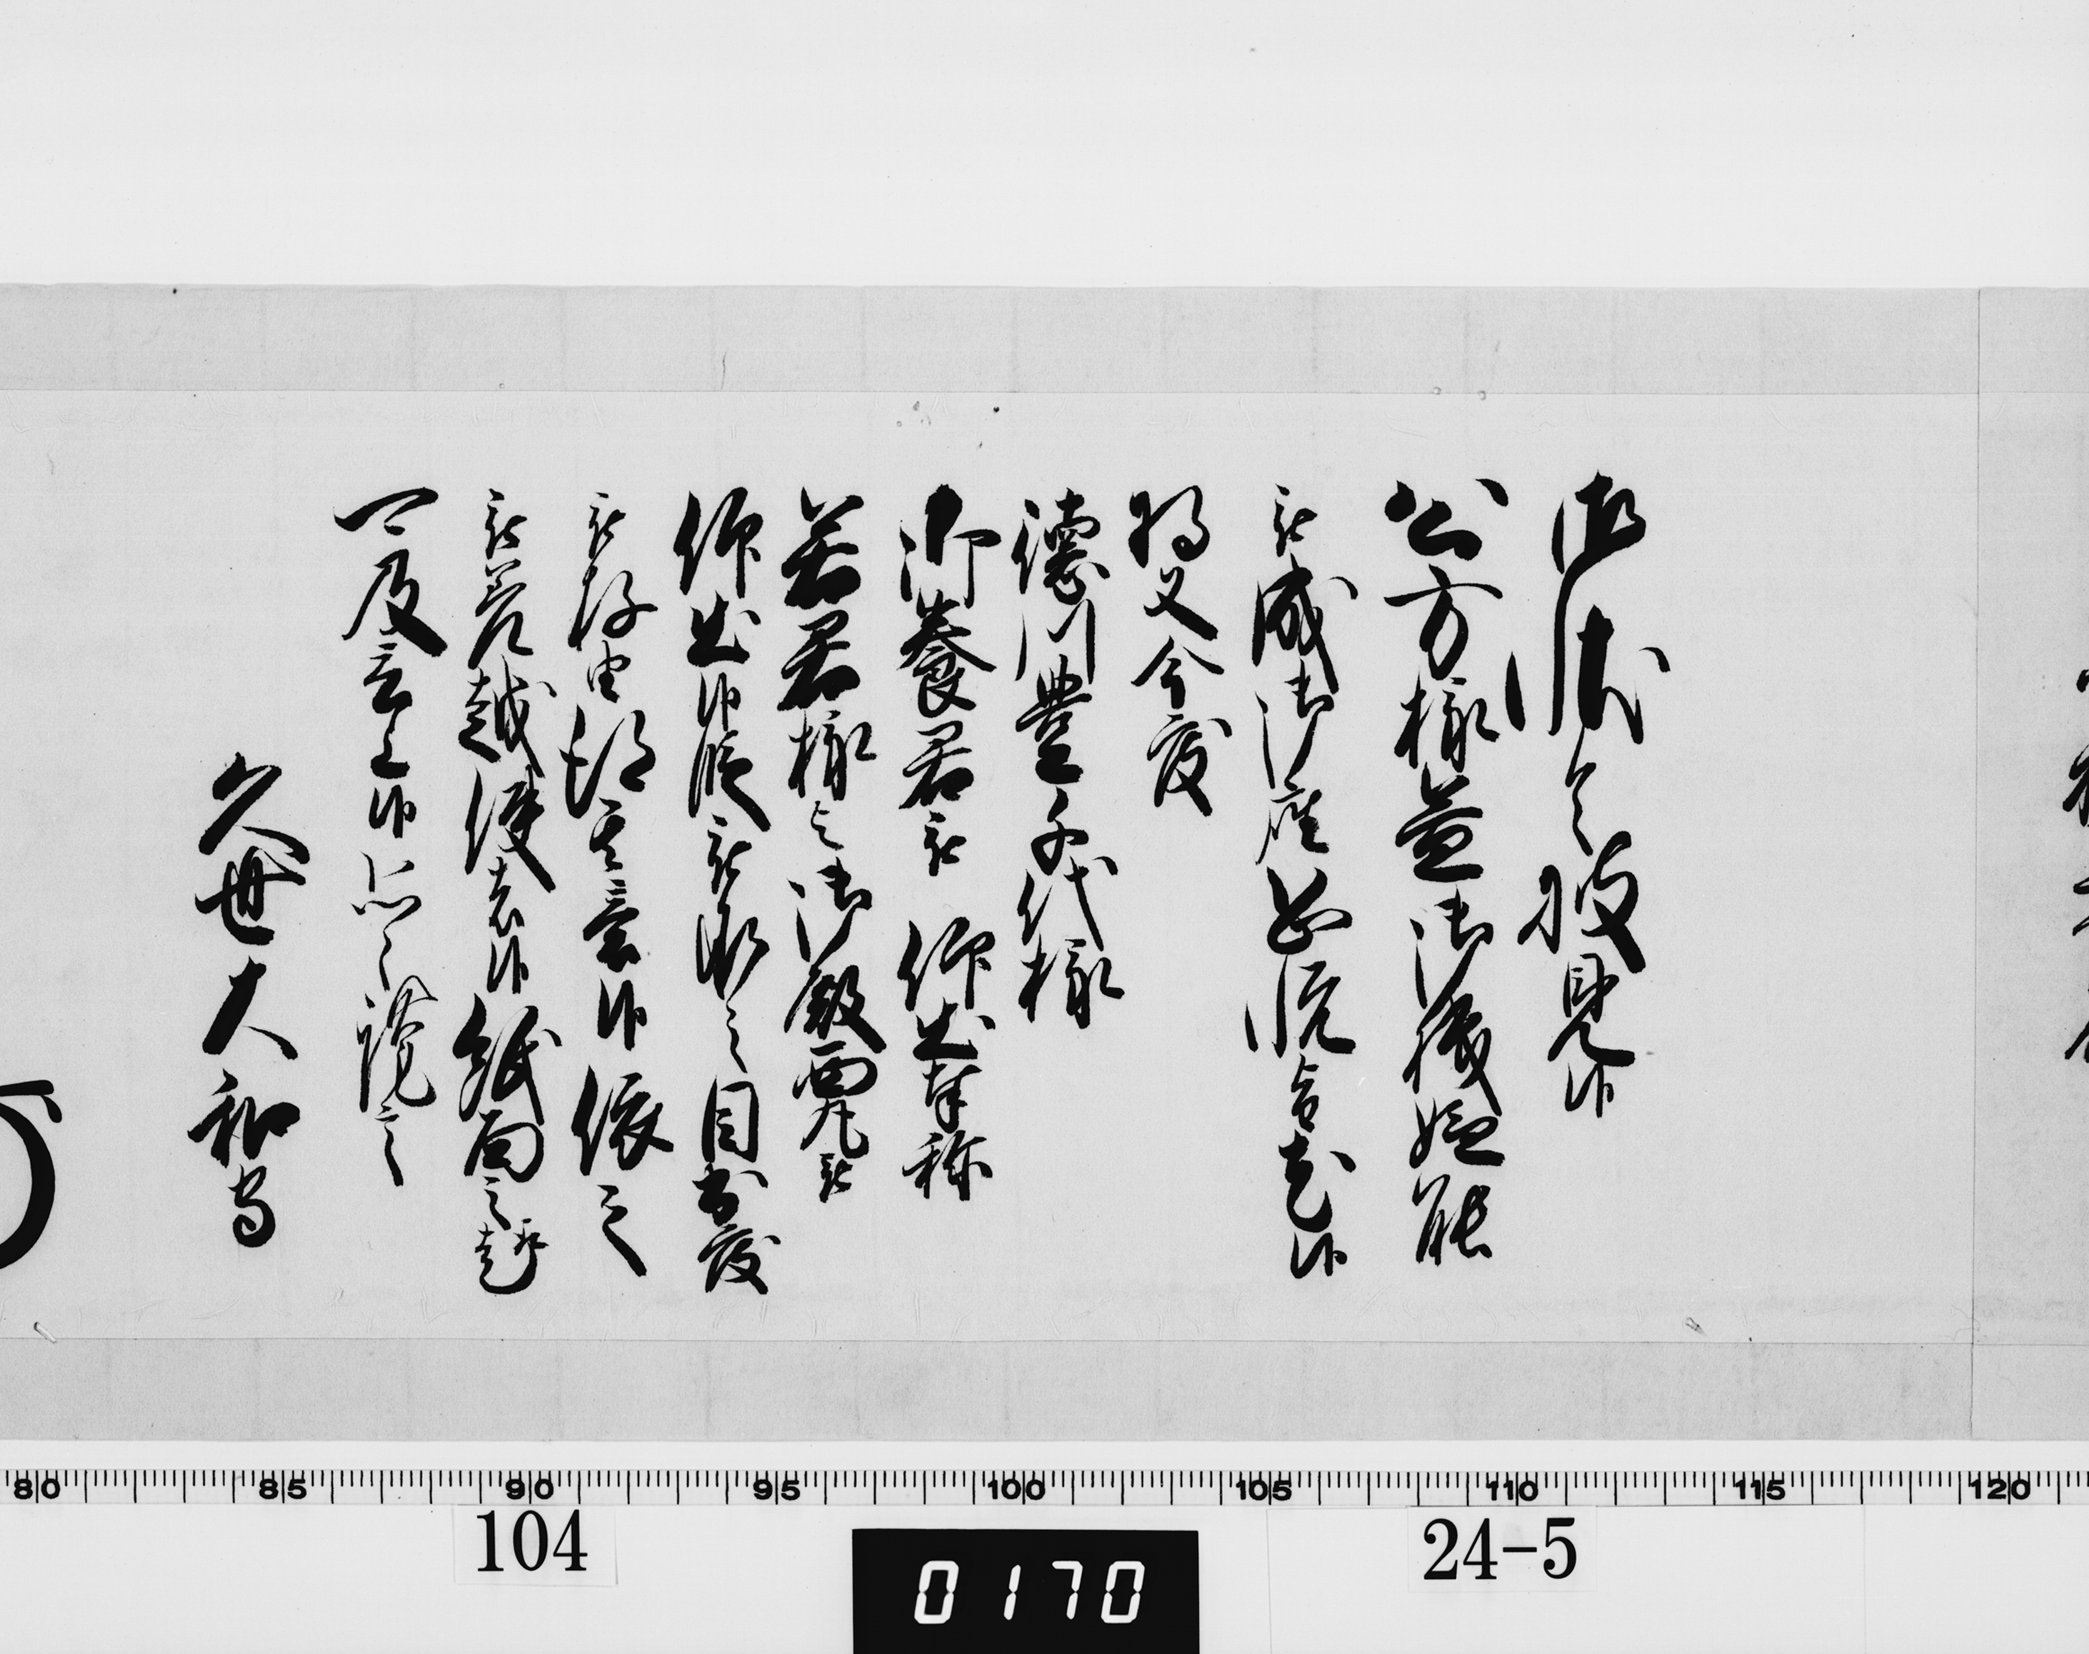 御状令披見候
公方様益御機嫌能
被成御座恐悦旨尤候
将又今度
徳川豊千代様
御養君被　仰出奉称
若君様与御殿西丸被
仰出候段被承之目出度
被存由得其意候依之
被差越使者候紙面之趣
可及言上候恐々謹言
久世大和守
80 85 90 95 100 105 110 115 120
104
24-5
0170